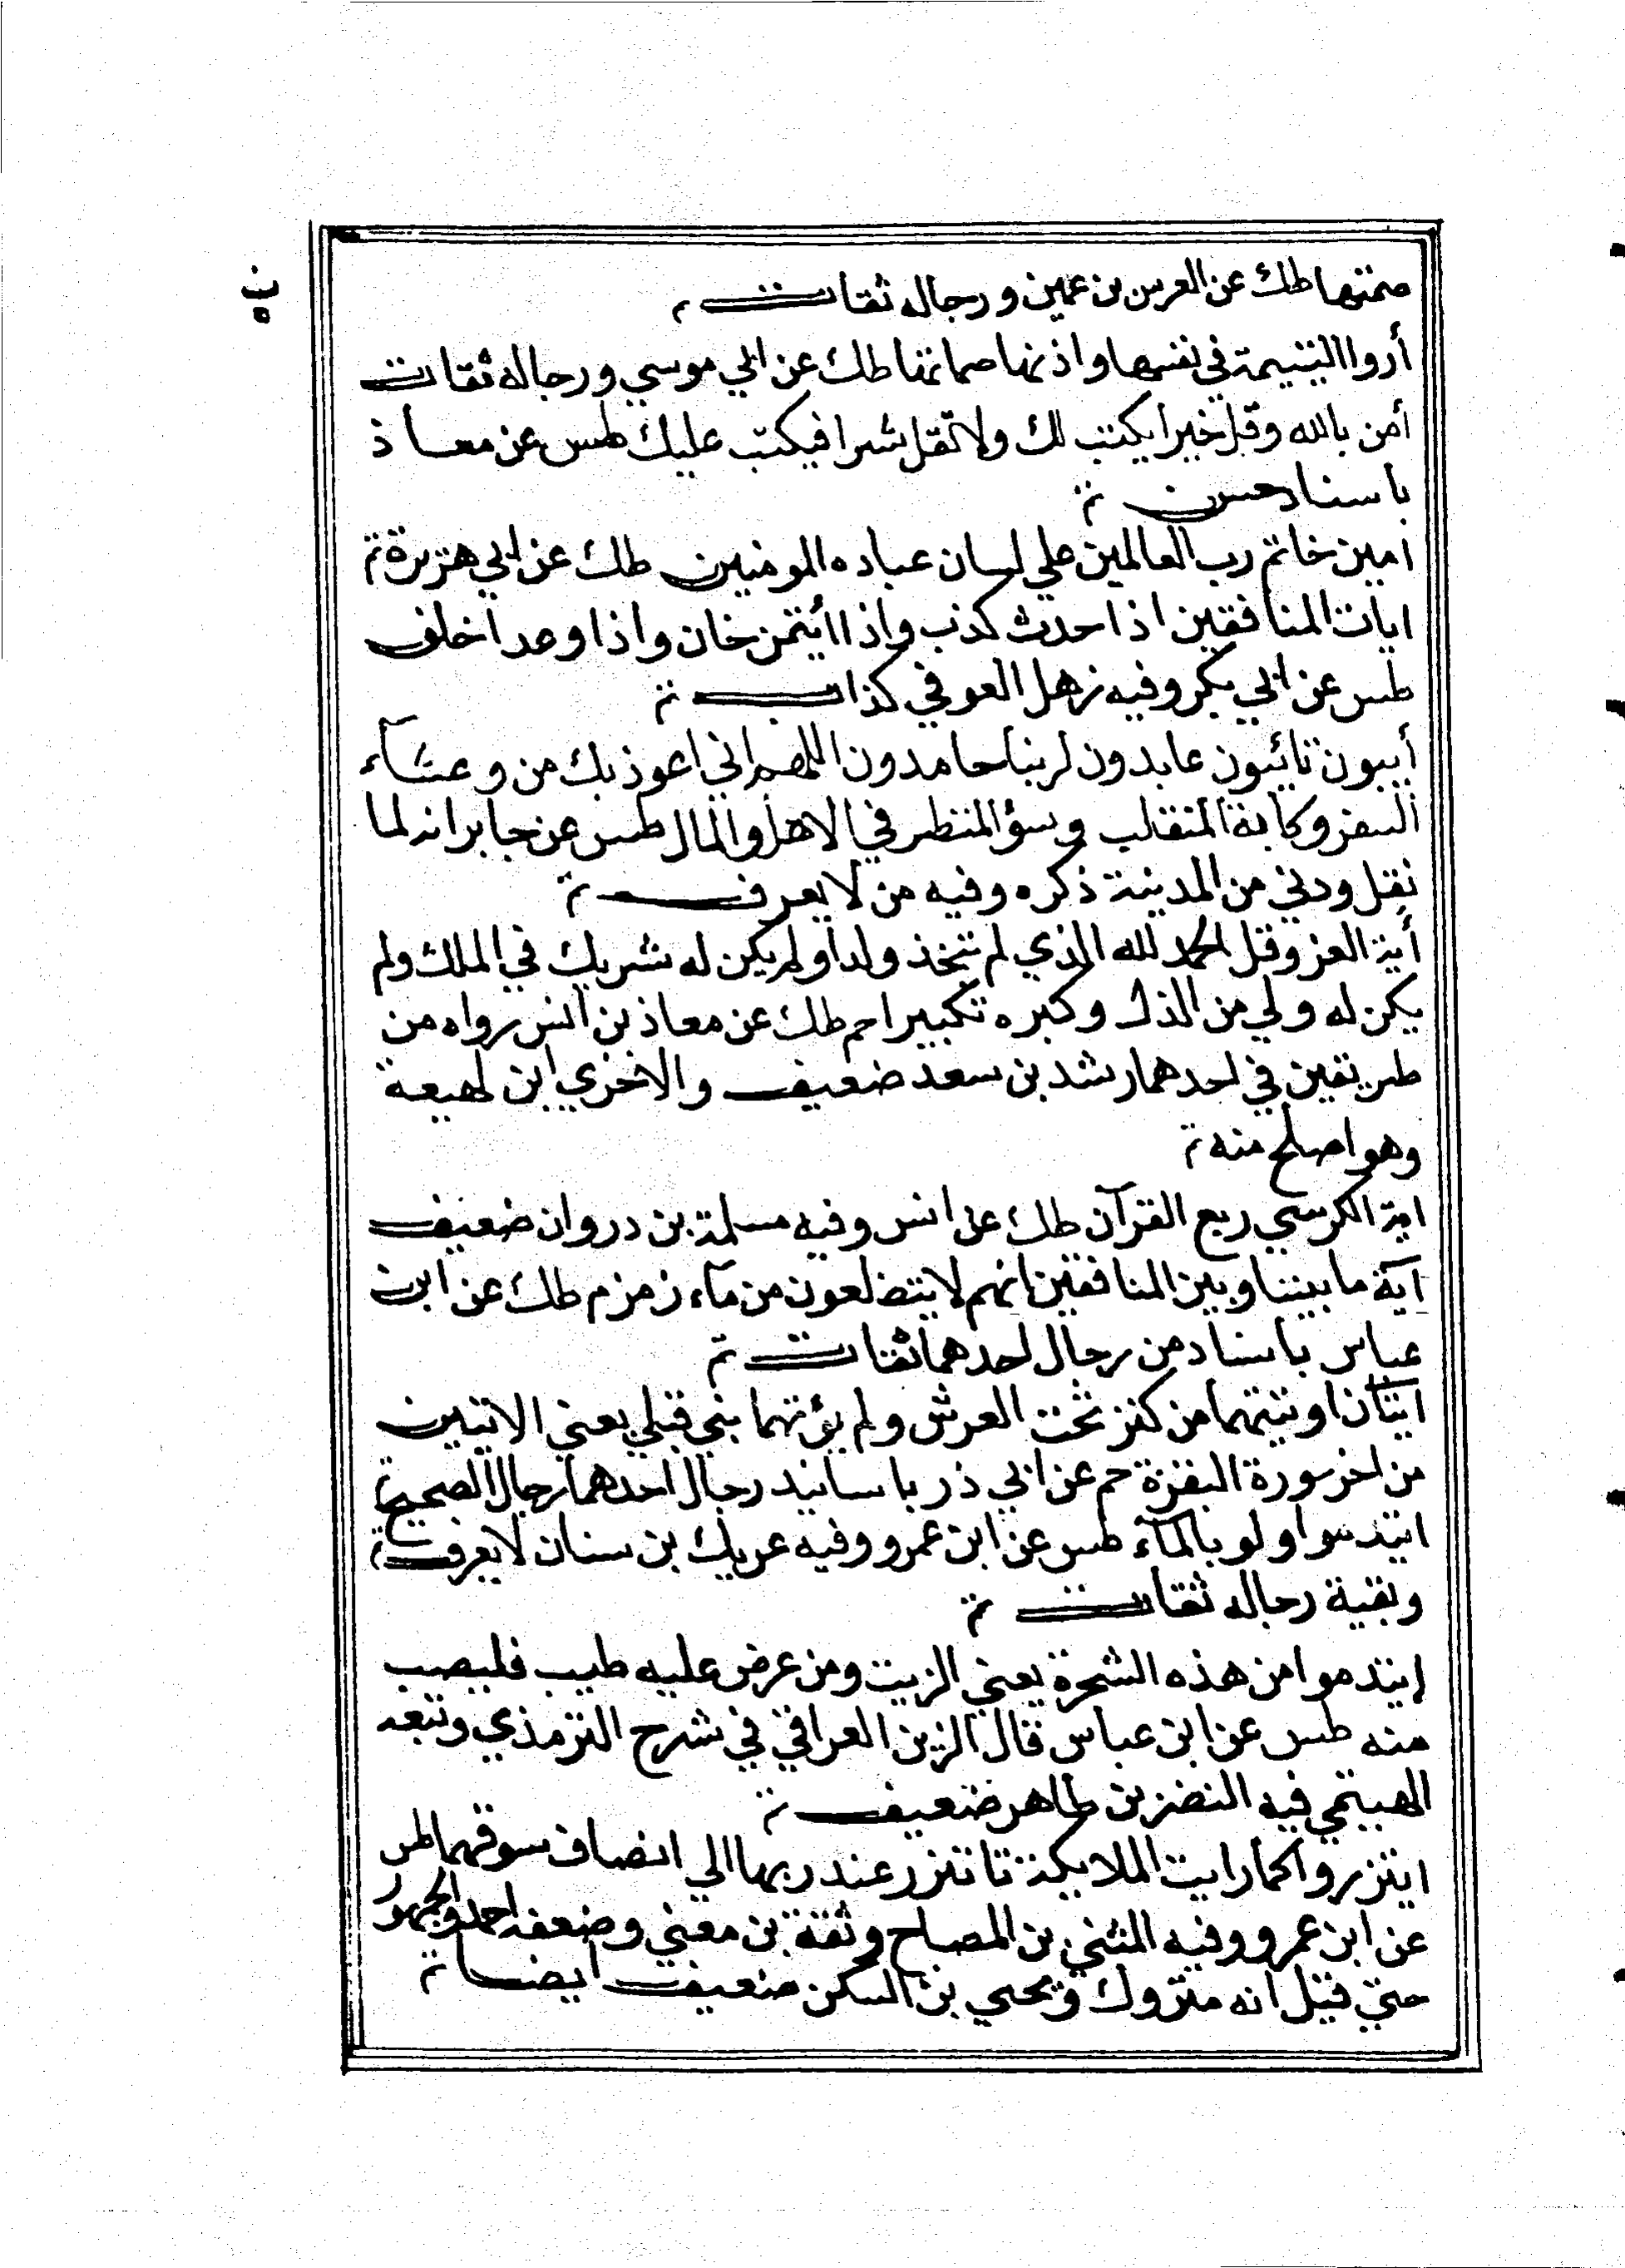 صمتها طك عن العرس بن عمين ورجاله ثقات
أروا اليتيمة في نفسها واذنها صماتها طك عن ابي موسي ورجاله ثقات
أمن بالله وقل خيرا يكتب لك ولا تقل شرا فيكتب عليك طس عن معاذ
باسناد حسن
امين خاتم رب العالمين علي لسان عباده المومنين طك عن ابي هريرة
ايات المنافقين اذا حدث كذب واذا ائتمن خان واذا وعد اخلف
طس عن ابي بكر وفيه زهل العوفي كذاب
أيبون تائبون عابدون لربنا حامدون اللهم اني اعوذ بك من وعثآء
السفر وكابة المنقلب وسؤ المنظر في الاهل والمال طس عن جابر انه لما
نقل ودني من المدينة ذكره وفيه من لا يعرف
أية العز وقل الحمد لله الذي لم يتخذ ولدا ولم يكن له شريك في الملك ولم
يكن له ولي من الذل وكبره تكبيرا حم طك عن معاذ بن انس رواه من
طريقين في احدهما رشد بن سعد ضعيف والاخري ابن لهيعة
وهو اصلح منه
اية الكرسي ربع القرآن طك عن انس وفيه مسلمة بن دروان ضعيف
آية ما بيننا وبين المنافقين انهم لا يتضلعون من مآء زمزم طك عن ابن
عباس باسناد من رجال احدهما ثقات
ايتان اوتيتهما من كنز تحت العرش ولم يؤتهما بني قبلي يعني الايتين
من اخر سورة البقرة حم عن ابي ذر باسانيد رجال احدهما رجال الصحيح
ايتدموا ولو بالمآء طس عن ابن عمرو وفيه عريك بن سنان لا يعرف
وبقية رجاله ثقات
إيتدموا من هذه الشجرة يعني الزيت ومن عرض عليه طيب فليصب
منه طس عن ابن عباس قال الزين العراقي في شرح الترمذي وتبعه
الهيتمي فيه النضر بن طاهر ضعيف
ايتزروا كما رايت الملايكة تاتزر عند ربها الي انصاف سوقهما طس
عن ابن عمرو وفيه المثني بن المصباح وثقة بن معني وضعفه احمد والجمهور
حتي قيل انه متروك ويحيي بن السكن ضعيف ايضا